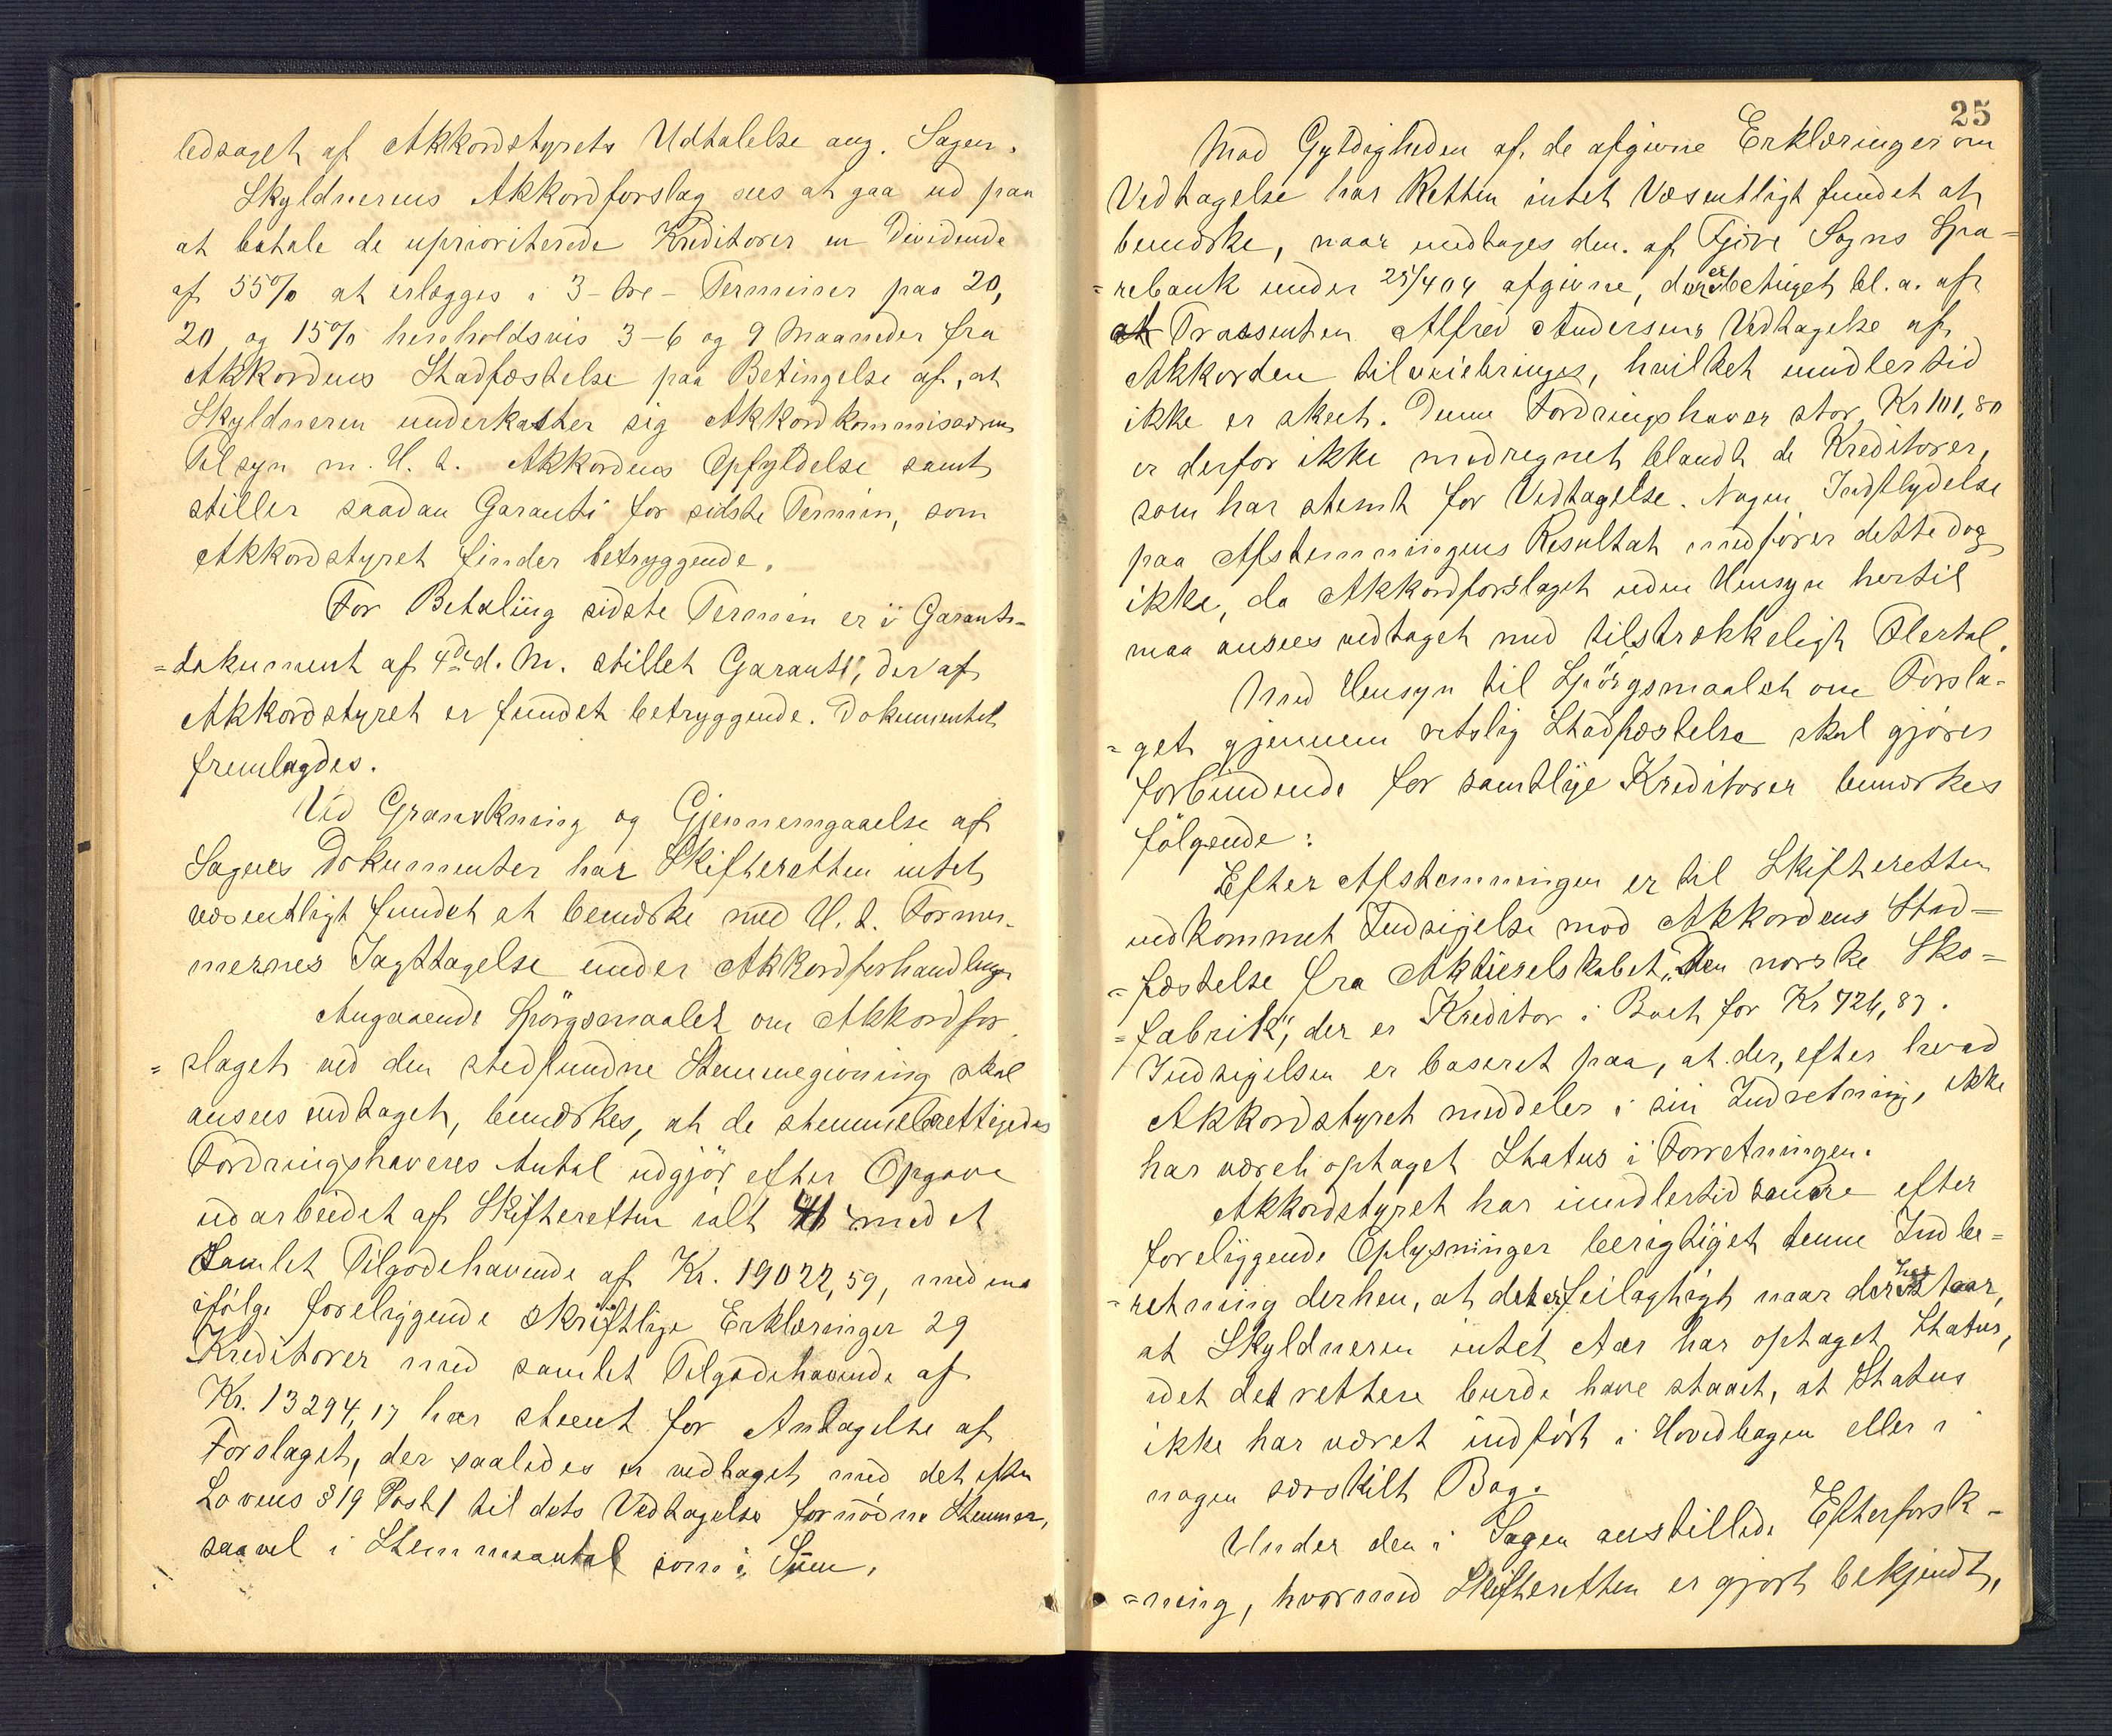 ledsaget af Akkordstyrets Udtalelse ang. Sagen.
Skyldnerens Akkordforslag sees at gaa ud paa
at betale de uprioriterede Kreditorer en Dividende
af 55% at erlægges i 3-tre-Terminer paa 20,
20 og 15% henholdsvis 3-6 og 9 Maaneder fra
Akkordens Stadfæstelse paa Betingelse af, at
Skyldneren underkaster sig Akkordkommisærens
Tilsyn m. H. t. Akkordens Opfyldelse samt
stiller saadan Garanti for sidste Termin, som
Akkordstyret finder betryggende.
For Betaling sidste Termin er i Garanti-
=dokument af 4de d. M. stillet Garanti, der af
Akkordstyret er fundet betryggende. Dokumentet
fremlagdes.
Ved Granskning og Gjennemgaaelse af
Sagens Dokumenter har Skifteretten intet
væsentligt fundet at bemærke med H. t. Former-
mernes Iagttagelse under Akkordforhandlingen
Angaaende Spörgsmaalet om Akkordfor
=slaget ved den stedfundne Stemmegivning skal
ansees vedtaget, bemærkes, at de stemmeberettigedes
Fordringshaveres Antal udgjör efter Opgave
udarbeidet af Skifteretten ialt 41 med et
samlet Tilgodehavende af Kr. 19022,59, medens
ifölge foreliggende skriftlige Erklæringer 29
Kreditorer med samlet Tilgodehavende af
Kr. 13294,17 har stemt for Antagelse af
Forslaget, der saaledes er vedtaget med det efter
Lovens § 19 Post 1 til dets Vedtagelse fornödne Stemmer,
saavel i Stemmeantal som i Sum.
25
Mod Gyldigheden af de afgivne Erklæringer om
Vedtagelse har Retten intet Væsentligt fundet at
bemærke, naar undtages den af Fjære Sogns Spa=
=rebank under 25/4 04 afgivne, der er betinget bl. a. af
at Trassenten Alfred Andersens Vedtagelse af
Akkorden tilveiebringes, hvilket imidlertid
ikke er skeet. Denne Fordringshaver stor Kr 101,80
er derfor ikke medregnet blandt de Kreditorer,
som har stemt for Vedtagelse. Nogen Indflydelse
paa Afstemningens Resultat medförer dette dog
ikke, da Akkordforslaget uden Hensyn hertil
maa ansees vedtaget med tilstrækkeligt Flertal.
Med Hensyn til Spörgsmaalet om Forsla-
=get gjennem retslig Stadfæstelse skal gjöres
forbindende for samtlige Kreditorer bemærkes
fölgende:
Efter Afstemningen er til Skifteretten
indkommet Indsigelse mod Akkordens Stad=
=fæstelse fra Aktieselskabet "Den norske Sko=
=fabrik", der er Kreditor i Boet for Kr 726,87.
Indsigelsen er baseret paa, at der, efter hvad
Akkordstyret meddeler i sin Indretning, ikke
har været optaget Status i Forretningen.
Akkordstyret har imidlertid senere efter
foreliggende Oplysninger berigtiget denne Indbe=
=retning derhen, at det er feilagtigt naar der her staar,
at Skyldneren intet Aar har optaget Status,
idet det rettere burde have staaet, at Status
ikke har været indfört i Hovedbogen eller i
nogen særskilt Bog.
Under den i Sagen anstillede Efterforsk-
=ning, hvormed Skifteretten er gjort bekjendt,